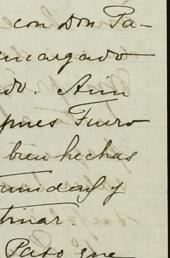 con Don Pa-
ncargado
do. Aun
pues Fuero
bien hechas
y
tinar.
Paso que